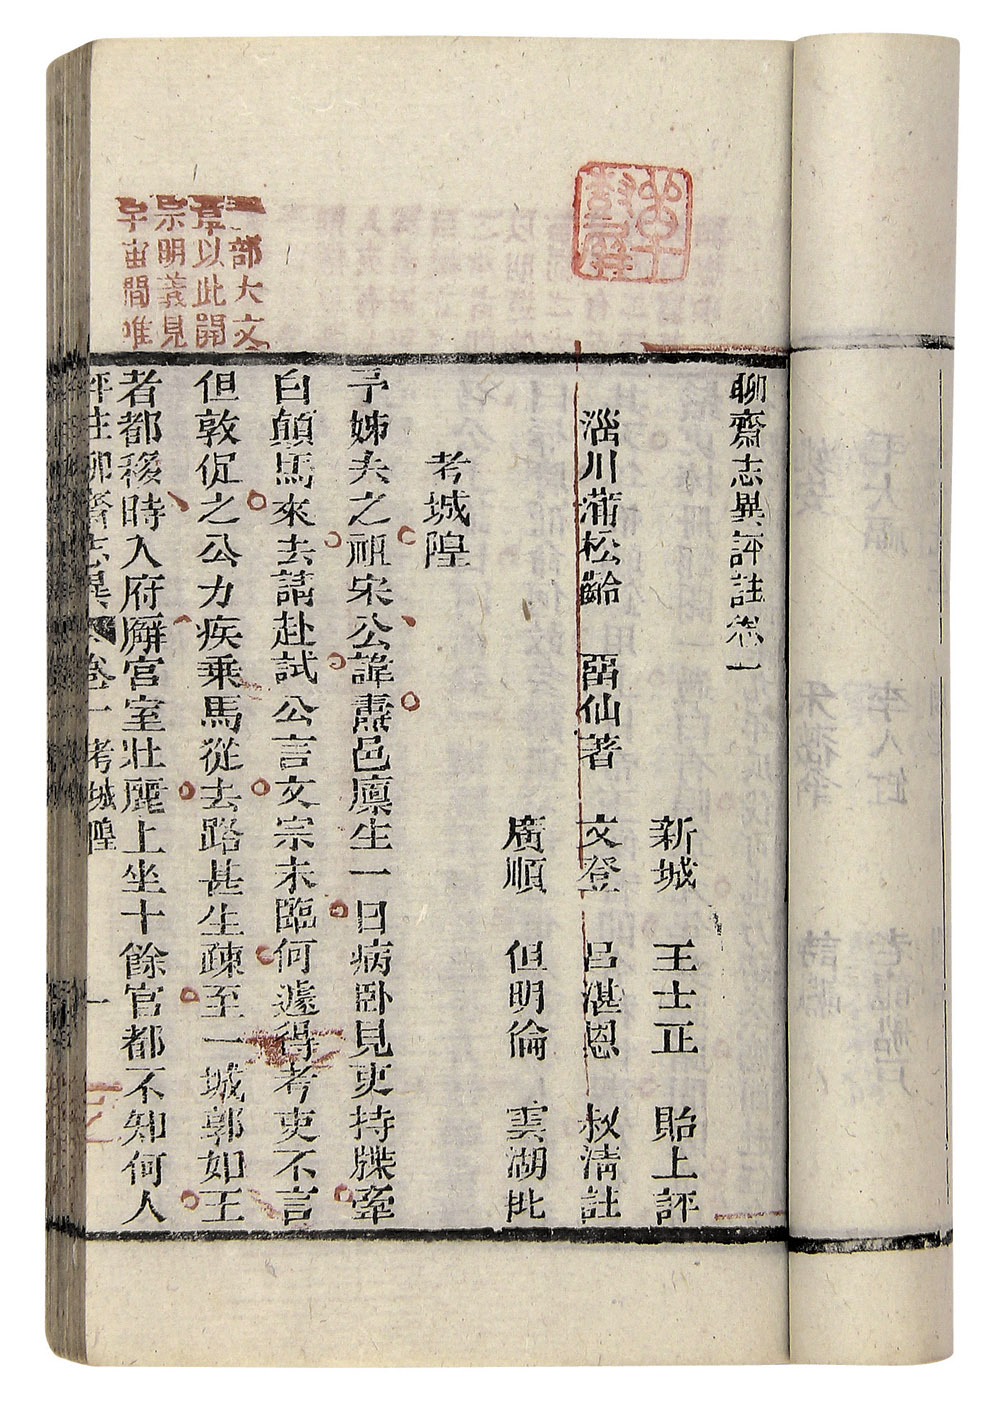 聊齋志異評註卷一
新城 王士正 貽上評
淄川蒲松齡 畱仙著 文登 呂湛恩 叔清註
廣順 但明倫 雲湖批
考城隍
予姊夫之祖宋公諱燾邑廩生一日病臥見吏持牒牽
白顛馬來去請赴試公言文宗未臨何遽得考吏不言
但敦促之公力疾乘馬從去路甚生疎至一城郭如王
者都移時入府廨宮室壯麗上坐十餘官都不知何人
評註聊齋志異 卷一 考城隍 一
一部大文
章以此開
宗明義見
宇宙間唯